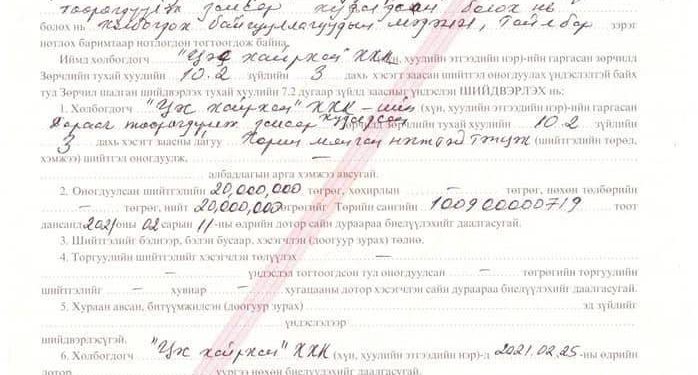 тоорогдуулж замаар худалдсан болох нь
болох нь холбогдох байгууллагуудын мэдээ, тайлбар зэрэг
нотлох баримтаар нотлогдон тогтоогдож байна.
Иймд холбогдогч "Цэц хайрхан" ХХК ийн, хуулийн этгээдийн нэр)-ийн гаргасан зөрчилд
Зөрчлийн тухай хуулийн 10.2 зүйлийн 3 дахь хэсэгт заасан шийтгэл оногдуулах үндэслэлтэй байх
тул Зөрчил шалган шийдвэрлэх тухай хуулийн 7.2 дугаар зүйлд заасныг үндэслэн ШИЙДВЭРЛЭХ нь:
1. Холбогдогч "Цэх хайрхан" ХХК-ийн (хүн, хуулийн этгээдийн нэр)-ийн гаргасан
тоорогдуулж замаар худалдсан зөрчилд Зөрчлийн тухай хуулийн 10.2 зүйлийн
3 дахь хэсэгт заасны дагуу Хорин мянган нэгжтэй тэнцэх (шийтгэлийн төрөл,
хэмжээ) шийтгэл оногдуулж, —
албадлагын арга хэмжээ авсугай.
2. Оногдуулсан шийтгэлийн 20,000,000 төгрөг, хохирлын — төгрөг, нөхөн төлбөрийн
— төгрөг, нийт 20,000,000 төгрөгийг Төрийн сангийн 100900000719 тоот
дансанд 2021 оны 02 сарын 11-ны өдрийн дотор сайн дураараа биелүүлэхийг даалгасугай.
3. Шийтгэлийг бэлнээр, бэлэн бусаар, хэсэгчлэн (доогуур зурах) төлнө.
4. Торгуулийн шийтгэлийг хэсэгчлэн төлүүлэх —
— үндэслэл тогтоогдсон тул оногдуулсан — төгрөгийн торгуулийн
шийтгэлийг — хувиар — хугацааны дотор хэсэгчлэн сайн дураараа биелүүлэхийг даалгасугай.
5. Хураан авсан, битүүмжилсэн (доогуур зурах) эд зүйлийг
үндэслэлээр
шийдвэрлэсүгэй.
6. Холбогдогч "Цэх хайрхан" ХХК (хүн, хуулийн этгээдийн нэр)-д 2021.02.25-ны өдрийн
дотор хүргэж нөхөн биелүүлэхийг даалгасугай.